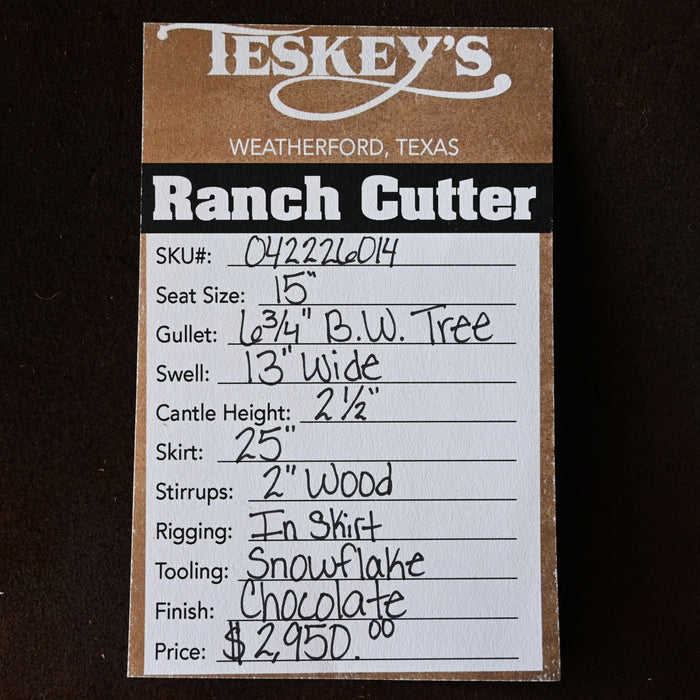 TESKEY'S
WEATHERFORD, TEXAS
Ranch Cutter
SKU#: 042226014
Seat Size: 15"
Gullet: 6 3/4" B.W. Tree
Swell: 13" Wide
Cantle Height: 2 1/2"
Skirt: 25"
Stirrups: 2" Wood
Rigging: In Skirt
Tooling: Snowflake
Finish: Chocolate
Price: $2,950.00